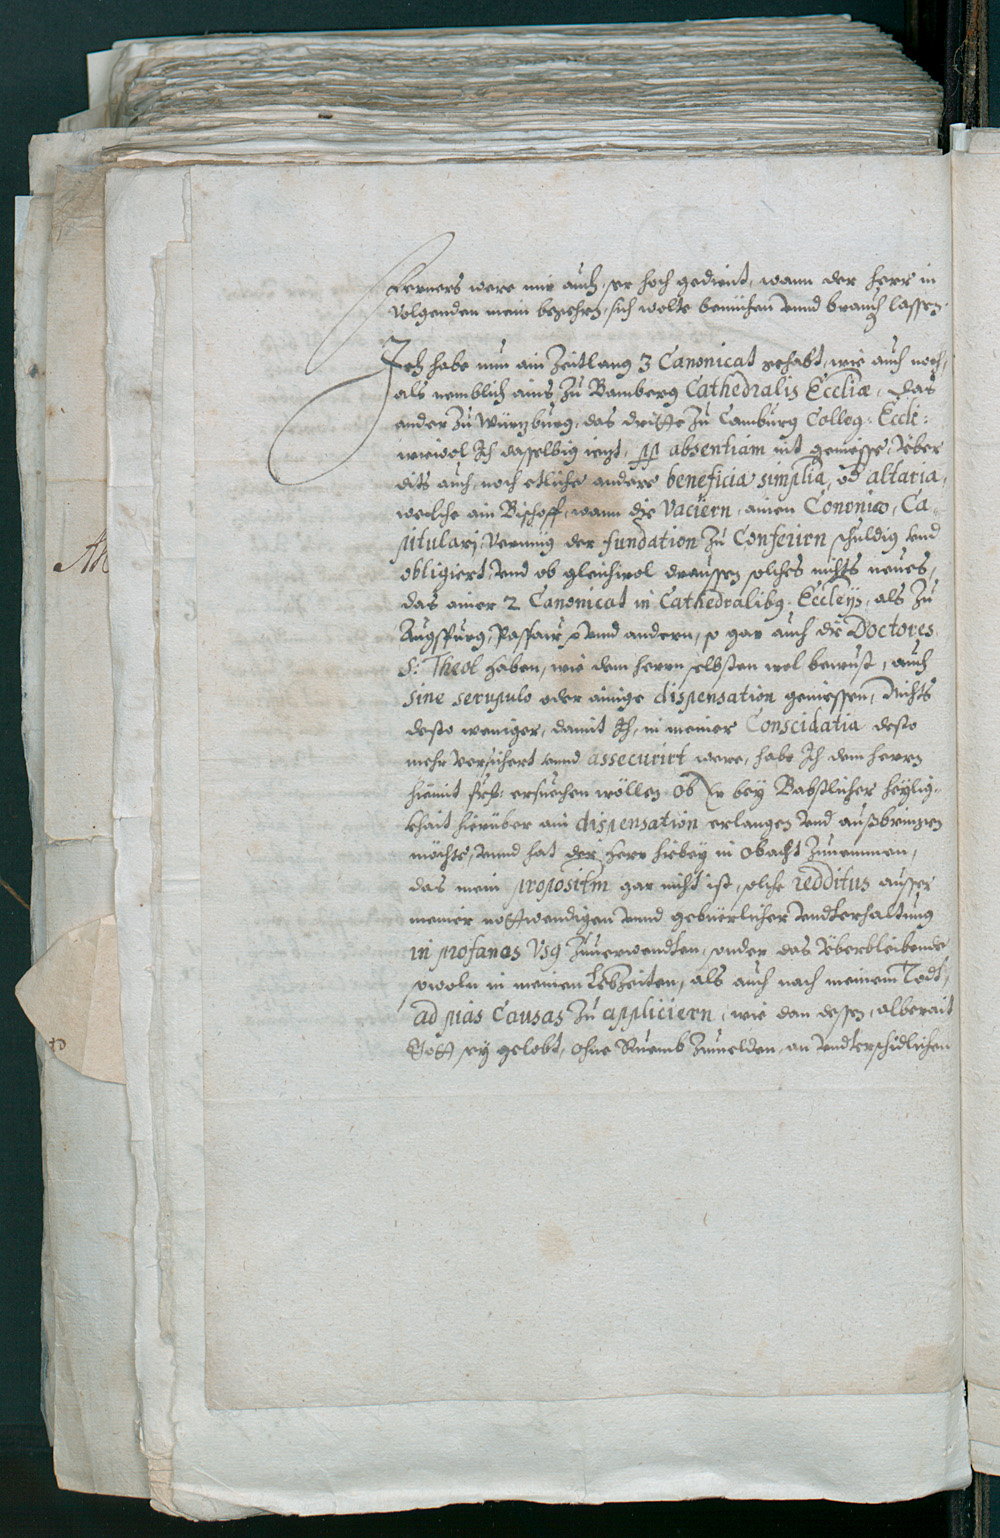 Ferners were mir auch ser hoch gedient, wann der Herr in
volgenden mein begehren, sich wolte bemühen vnnd brauchen lassen.
Ich habe nun ain Zeitlang 3 Canonicat gehabt, wie auch noch,
als nemblich ains zu Bamberg Cathedralis Eccliæ, das
ander zu Würzburg, das dritte zu Camburg Colleg: Eccle:
wiewol Ich dasselbig iezt, per absentiam nit geniesse, Über
dits auch, noch etliche andere beneficia simplia, od altaria,
welche ain Bischoff, wann die Vaciern, ainen Cononico, Ca-
pitulari, vermüg der fundation zu Conferirn schuldig vnd
obligiert, vnd ob gleichwol draussen solches nichts neues,
das ainer 2 Canonicat in Cathedralibq Eccleijs, als zu
Augspurg, Passaw, vnnd andern, so gar auch die Doctores
S: Theol haben, wie dem herrn selbsten wol bewust, auch
sine scrupulo oder ainige dispensation geniessen, Nichts
desto weniger, damit Ich, in meiner Conscidatia desto
mehr versichert vnnd assecurirt were, habe Ich dem herrn
hiemit ersuechen wöllen ob Er bey Bäbstlicher heylig-
khait hierüber ain dispensation erlangen vnd außbringen
möchte, vnnd hat der Herr hiebey in obacht zunemmen,
das mein propositm gar nicht ist, solche redditus ausser
meiner nottwendigen vnnd gebürlicher vndterhaltung
in profanos Vsq zuuerwendten, sonder das Überbleibende
sowoln in meinen Lebzeiten, als auch nach meinem Todt,
ad pias Causas zu appliciern, wie dan dessen, alberait
Gott sey gelobt, ohne Ruemb zumelden, an vndterschidlichen